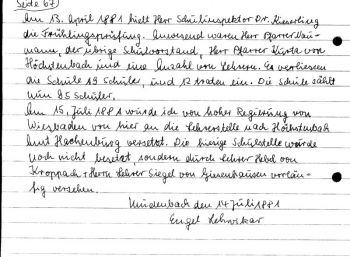 Seite 67)
Am 13. April 1881 hielt Herr Schulinspektor Dr. Kinerling
die Frühlingsprüfung. Anwesend waren Herr Pfarrer Nau-
mann, der übrige Schulvorstand, Herr Pfarrer Kürta von
Höchstenbach und eine Anzahl von Lehrern. Es verliessen
die Schule 19 Schüler, und 12 traten ein. Die Schule zählt
nun 85 Schüler.
Am 15. Juli 1881 wurde ich von hoher Regierung von
Wiesbaden von hier an die Lehrerstelle nach Höchstenbach
Amt Hachenburg versetzt. Die hiesige Schulstelle wurde
noch nicht besetzt, sondern durch Lehrer Hebel von
Kroppach + Herrn Lehrer Siegel von Giesenhausen vorläu-
fig versehen.
Mudenbach den 14 Juli 1881
Engel Lehrvikar